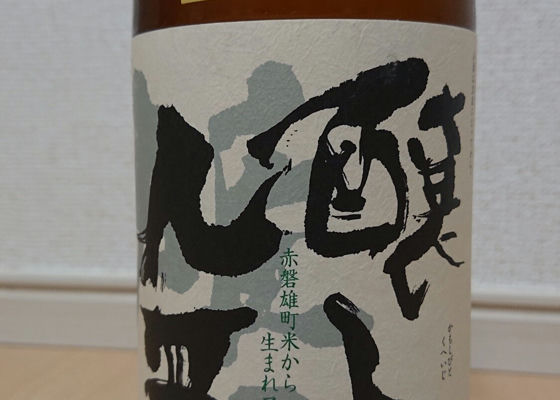 醸し
九平
赤磐雄町米から
生まれ
かもしびと
くへいじ